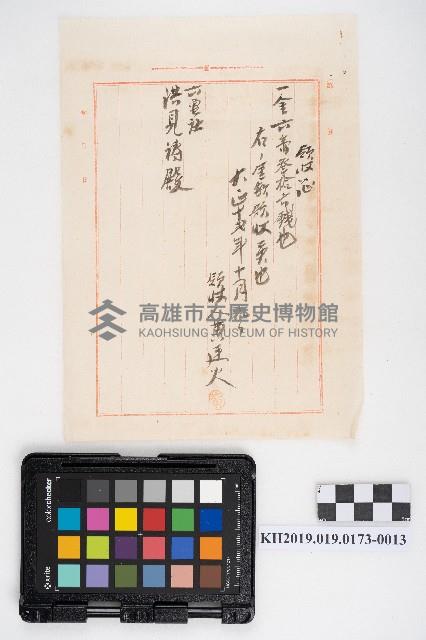 領收證
一金六圓參拾六錢也
右ノ金額領收
也
大正十
年十月
領收人
連火
六龜社
洪見禱殿
高雄市立歷史博物館
KAOHSIUNG MUSEUM OF HISTORY
colorchecker
x-rite
KH2019.019.0173-0013